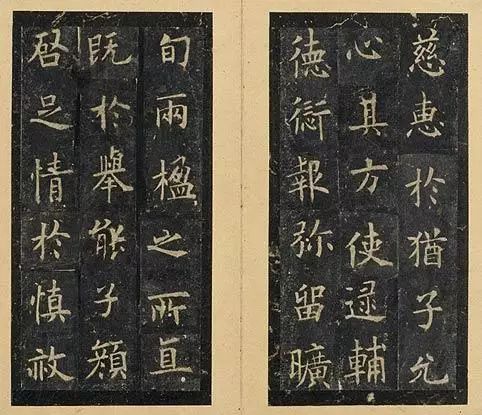 慈惠於猶子允
心其方使輔
徳愆報弥留曠
旬兩楹之所直
既於舉能子顔
啓足情於慎